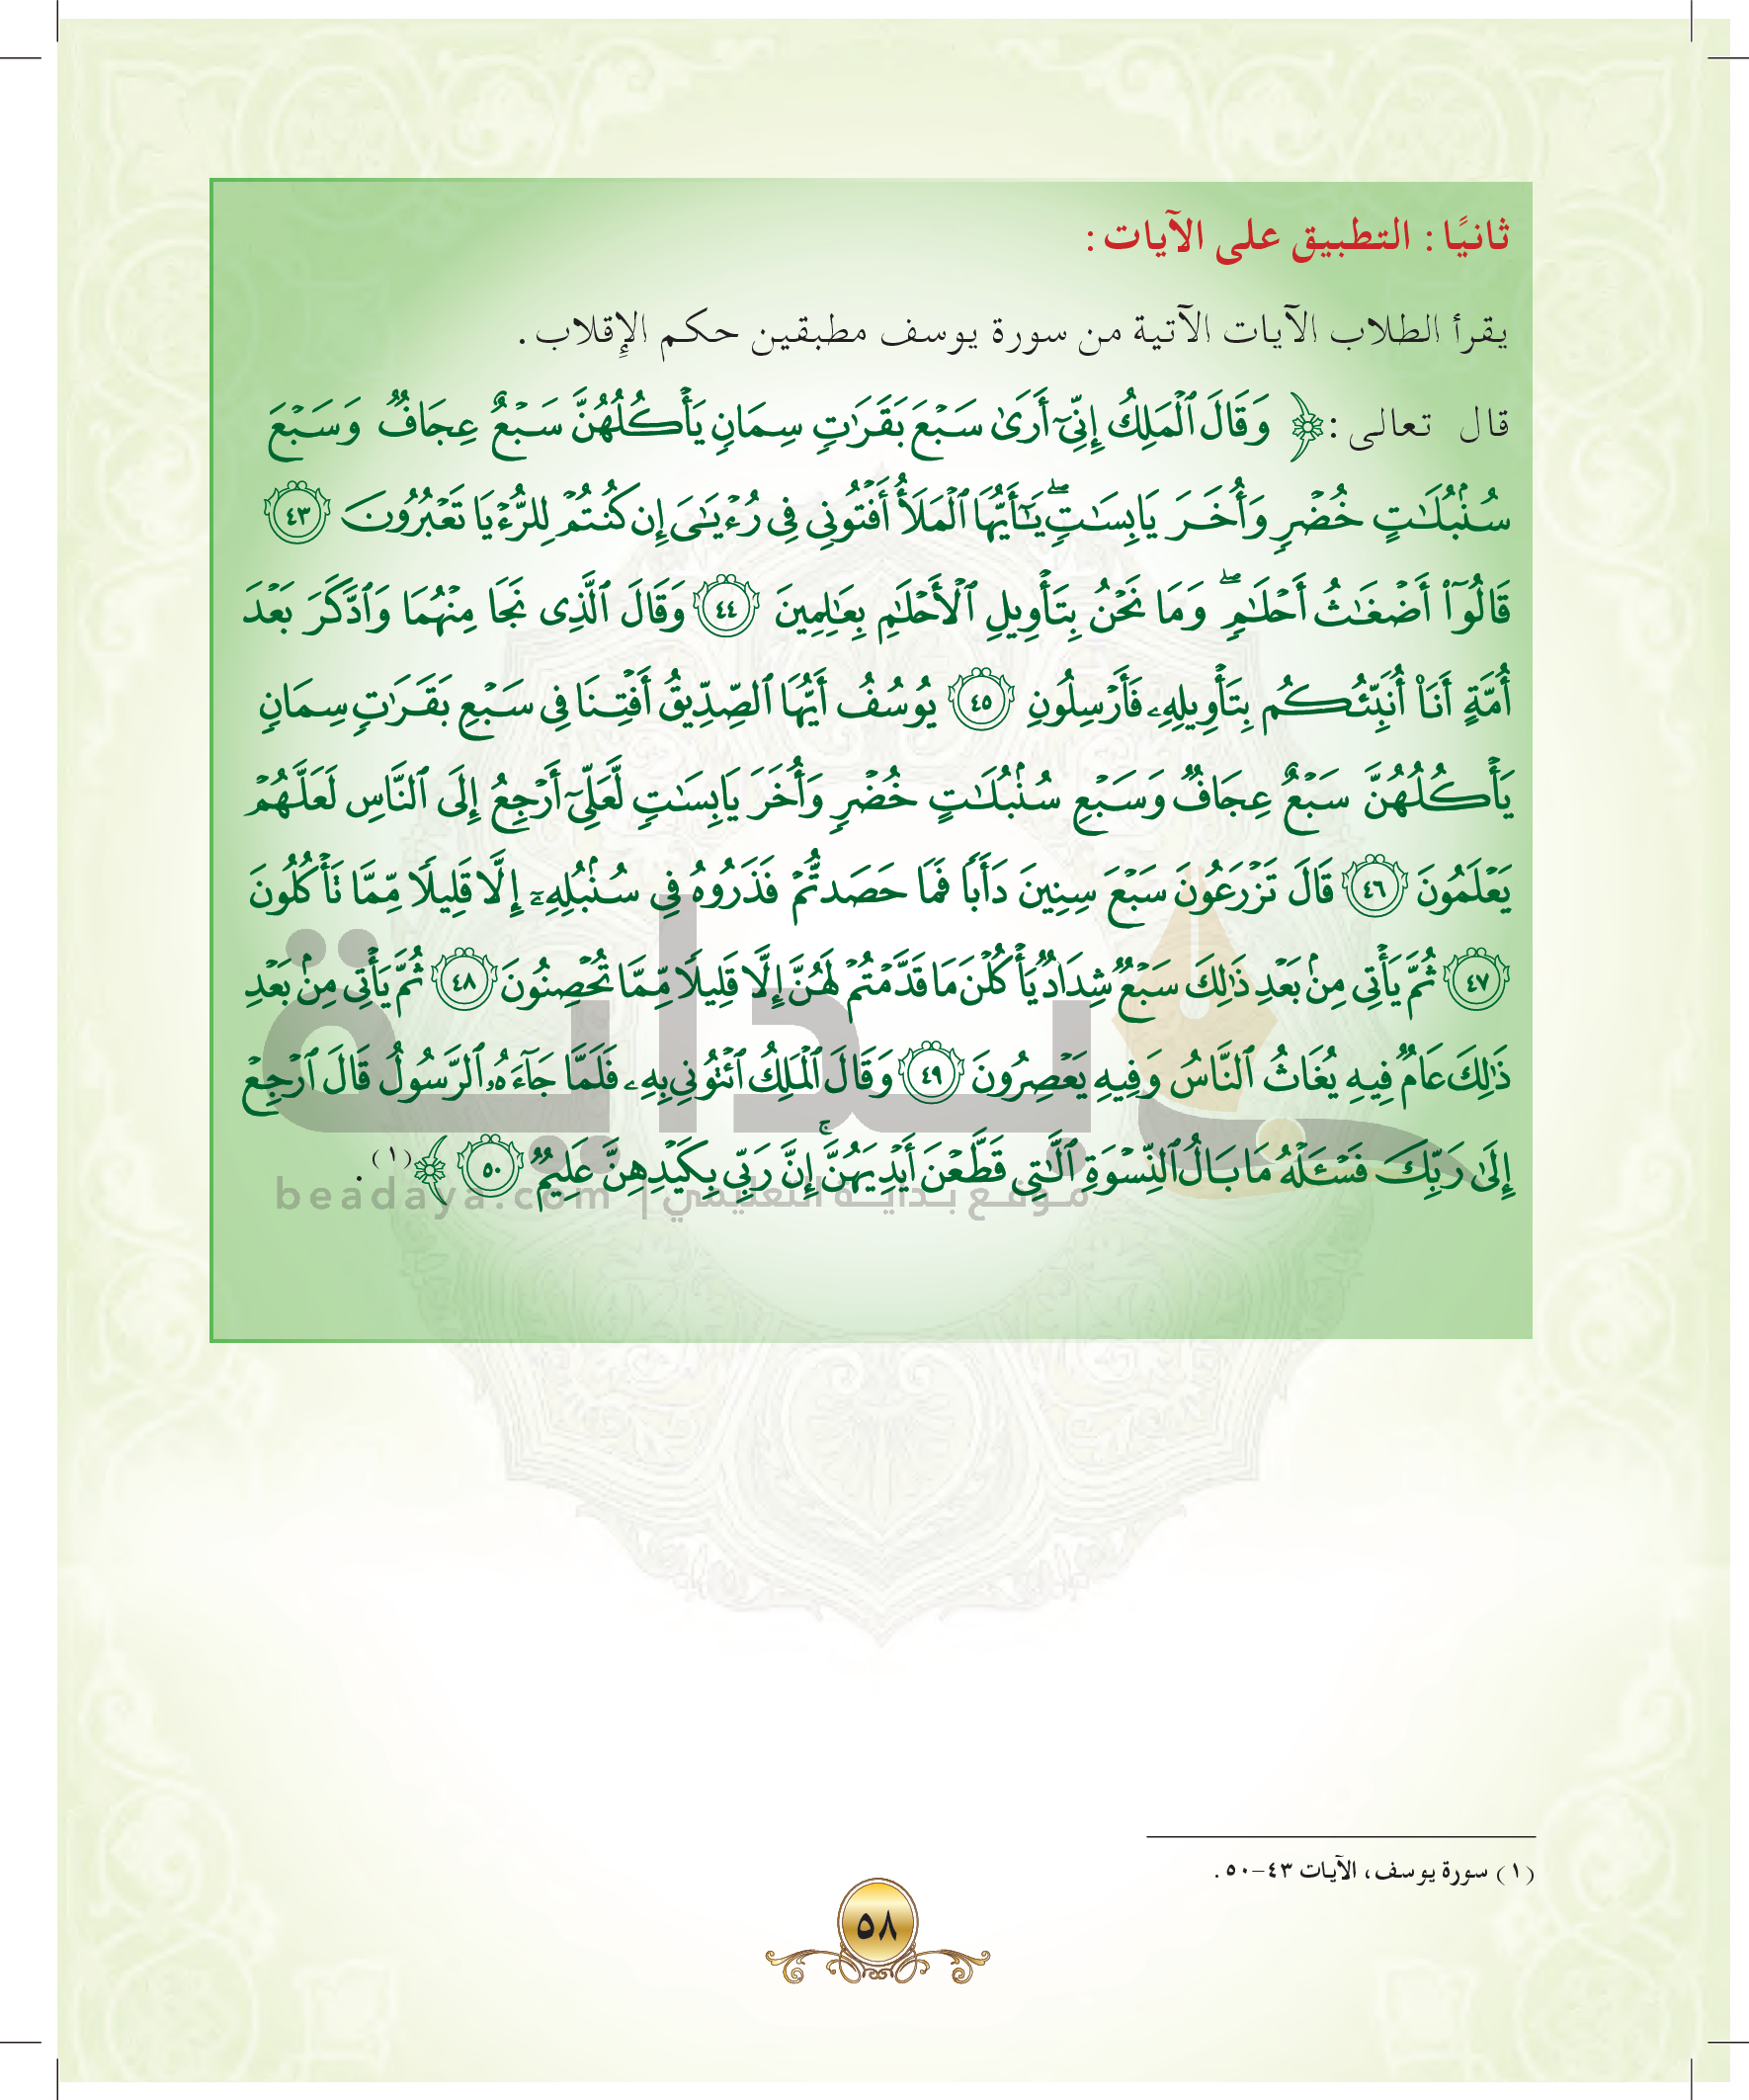 ثانيًا : التطبيق على الآيات :
يقرأ الطلاب الآيات الآتية من سورة يوسف مطبقين حكم الإقلاب .
قال تعالى :﴿ وَقَالَ ٱلْمَلِكُ إِنِّىٓ أَرَىٰ سَبْعَ بَقَرَٰتٍ سِمَانٍ يَأْكُلُهُنَّ سَبْعٌ عِجَافٌ وَسَبْعَ
سُنۢبُلَٰتٍ خُضْرٍ وَأُخَرَ يَابِسَٰتٍ ۖ يَٰٓأَيُّهَا ٱلْمَلَأُ أَفْتُونِى فِى رُءْيَٰىَ إِن كُنتُمْ لِلرُّءْيَا تَعْبُرُونَ ٤٣
قَالُوٓا۟ أَضْغَٰثُ أَحْلَٰمٍ ۖ وَمَا نَحْنُ بِتَأْوِيلِ ٱلْأَحْلَٰمِ بِعَٰلِمِينَ ٤٤ وَقَالَ ٱلَّذِى نَجَا مِنْهُمَا وَٱدَّكَرَ بَعْدَ
أُمَّةٍ أَنَا۠ أُنَبِّئُكُم بِتَأْوِيلِهِۦ فَأَرْسِلُونِ ٤٥ يُوسُفُ أَيُّهَا ٱلصِّدِّيقُ أَفْتِنَا فِى سَبْعِ بَقَرَٰتٍ سِمَانٍ
يَأْكُلُهُنَّ سَبْعٌ عِجَافٌ وَسَبْعِ سُنۢبُلَٰتٍ خُضْرٍ وَأُخَرَ يَابِسَٰتٍ لَّعَلِّىٓ أَرْجِعُ إِلَى ٱلنَّاسِ لَعَلَّهُمْ
يَعْلَمُونَ ٤٦ قَالَ تَزْرَعُونَ سَبْعَ سِنِينَ دَأَبًا فَمَا حَصَدتُّمْ فَذَرُوهُ فِى سُنۢبُلِهِۦٓ إِلَّا قَلِيلًا مِّمَّا تَأْكُلُونَ
٤٧ ثُمَّ يَأْتِى مِنۢ بَعْدِ ذَٰلِكَ سَبْعٌ شِدَادٌ يَأْكُلْنَ مَا قَدَّمْتُمْ لَهُنَّ إِلَّا قَلِيلًا مِّمَّا تُحْصِنُونَ ٤٨ ثُمَّ يَأْتِى مِنۢ بَعْدِ
ذَٰلِكَ عَامٌ فِيهِ يُغَاثُ ٱلنَّاسُ وَفِيهِ يَعْصِرُونَ ٤٩ وَقَالَ ٱلْمَلِكُ ٱئْتُونِى بِهِۦ فَلَمَّا جَآءَهُ ٱلرَّسُولُ قَالَ ٱرْجِعْ
إِلَىٰ رَبِّكَ فَسْـَٔلْهُ مَا بَالُ ٱلنِّسْوَةِ ٱلَّٰتِى قَطَّعْنَ أَيْدِيَهُنَّ ۚ إِنَّ رَبِّى بِكَيْدِهِنَّ عَلِيمٌ ٥٠ ﴾(١) .
بداية
موقع بداية التعليمي | beadaya.com
(١) سورة يوسف، الآيات ٤٣-٥٠ .
٥٨